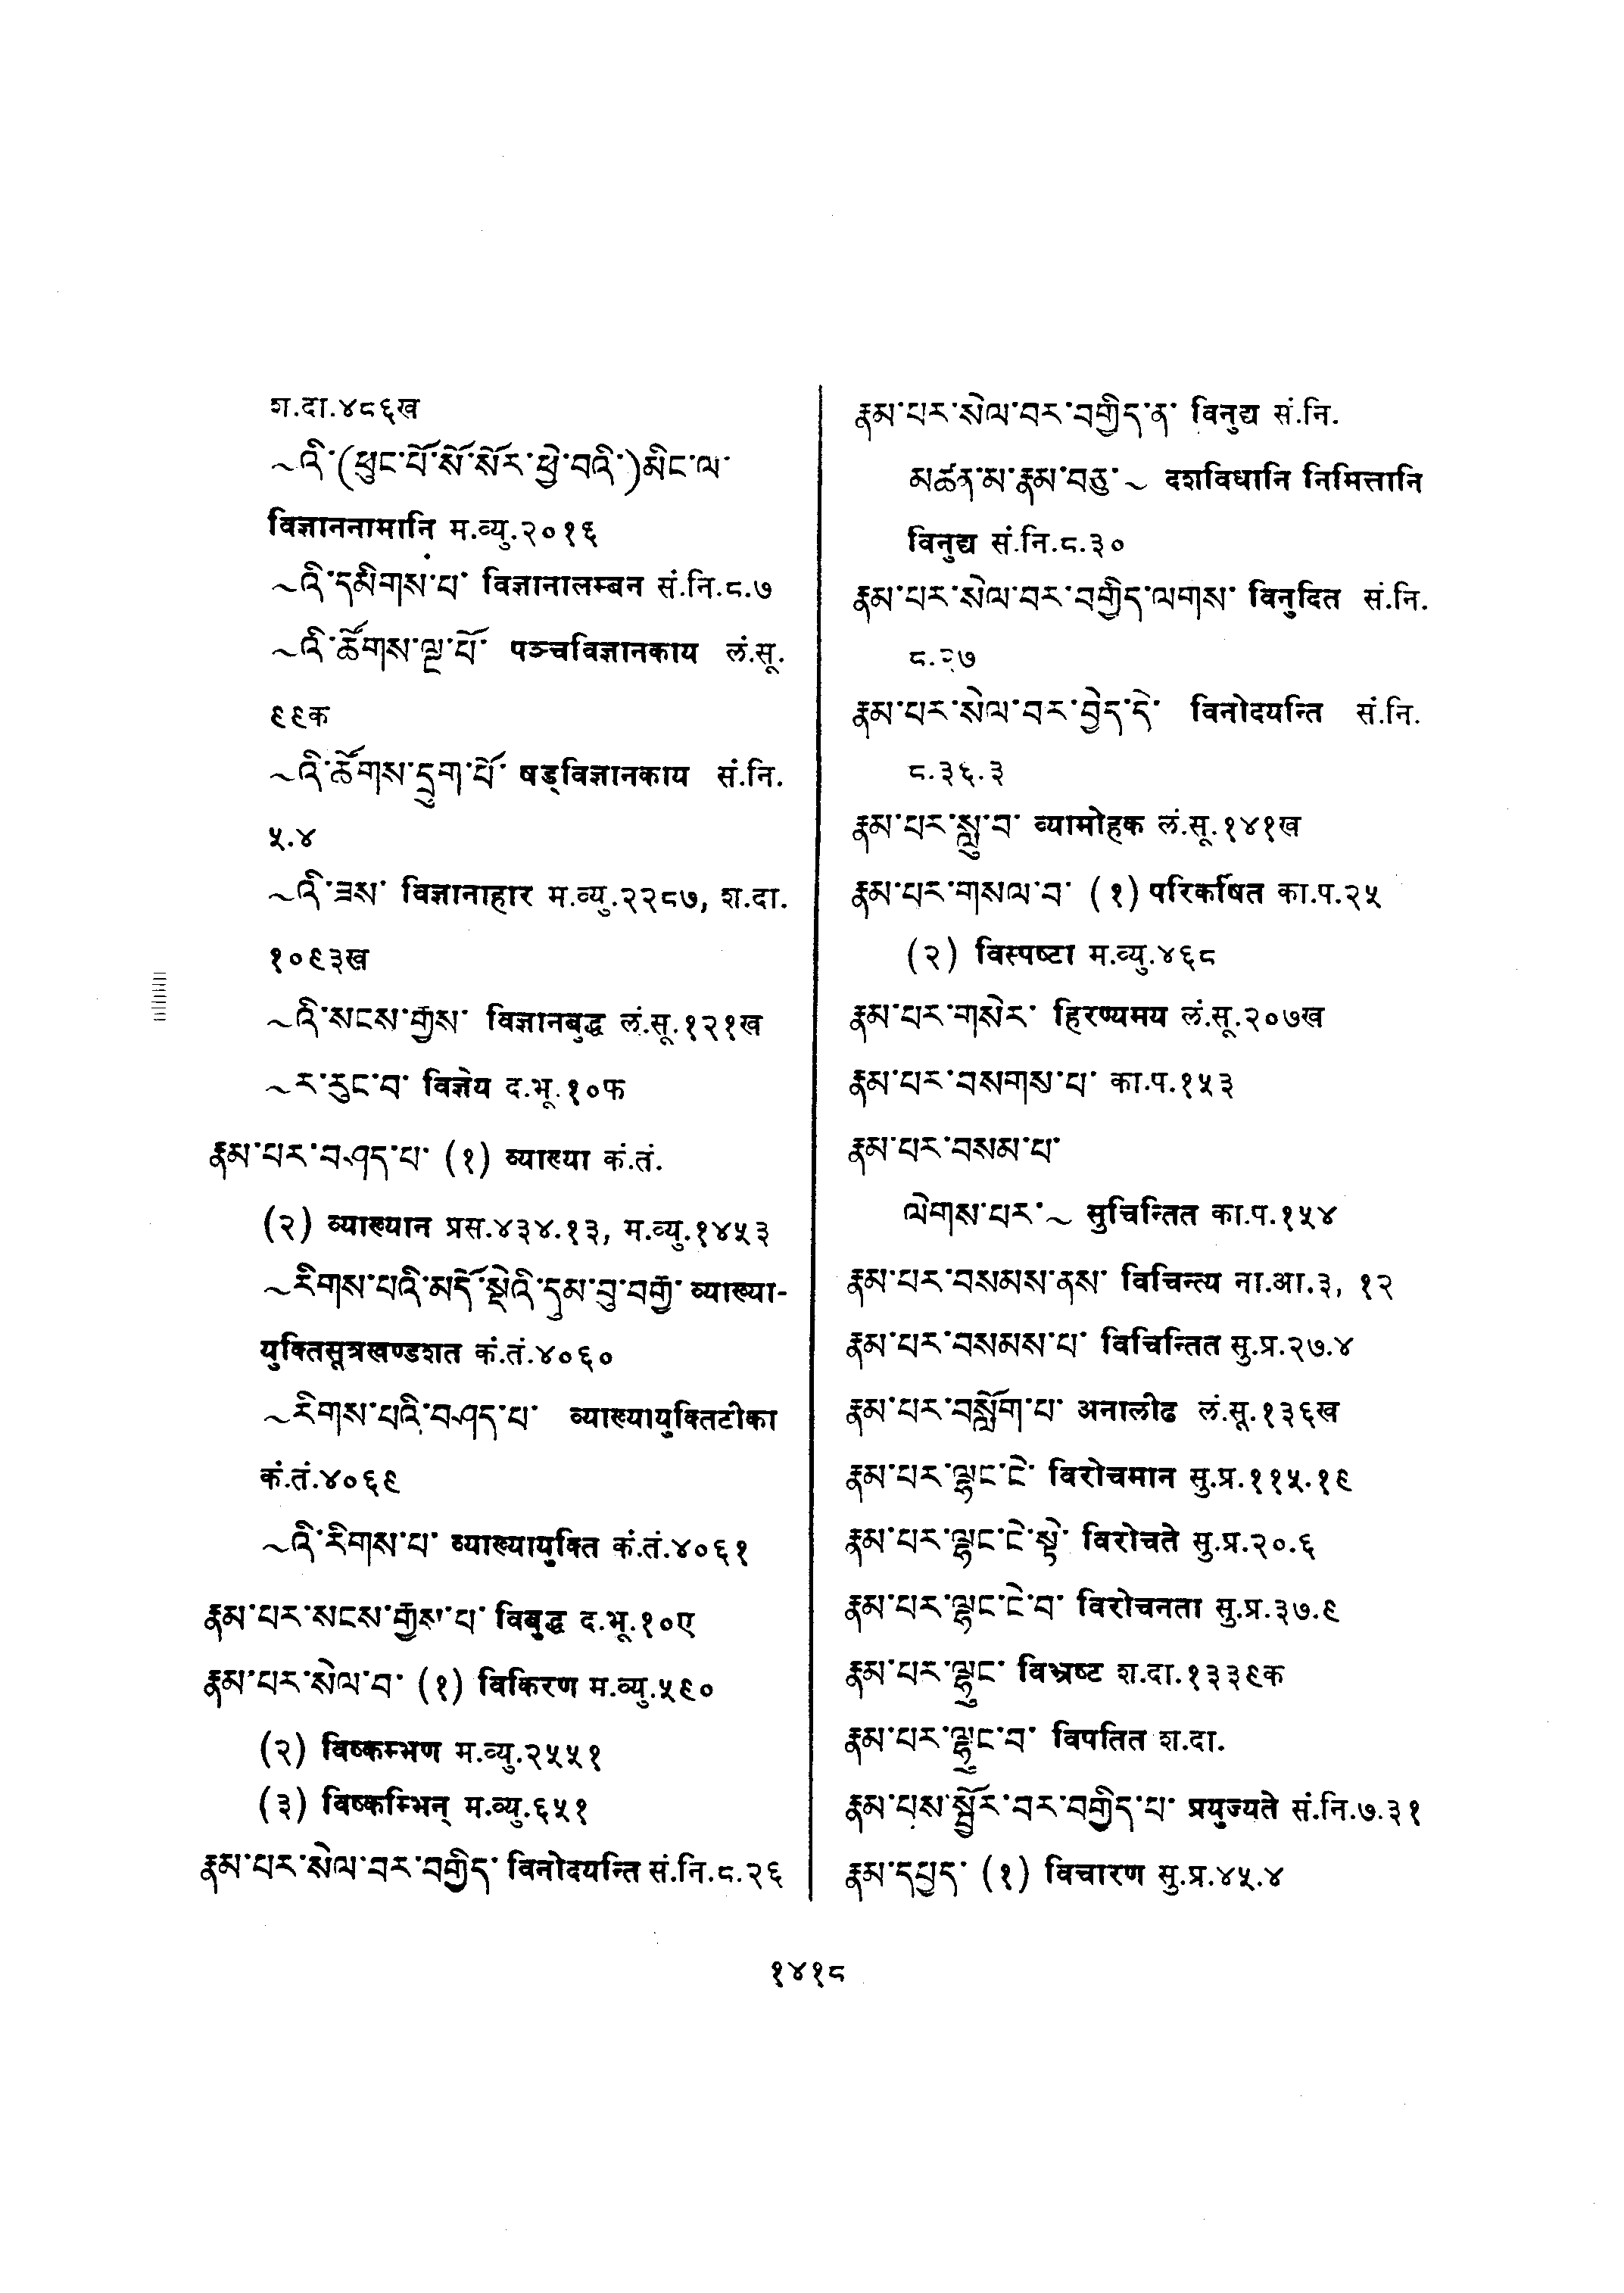 श.दा.४८६ख
~འི་(ཕུང་པོ་སོ་སོར་ཕྱེ་བའི་)མིང་ལ་
विज्ञाननामानि म.व्यु.२०१६
~འི་དམིགས་པ་ विज्ञानालम्बन सं.नि.८.७
~འི་ཚོགས་ལྔ་པོ་ पञ्चविज्ञानकाय लं.सू.
९९क
~འི་ཚོགས་དྲུག་པོ་ षड्विज्ञानकाय सं.नि.
५.४
~འི་ཟས་ विज्ञानाहार म.व्यु.२२८७, श.दा.
१०९३ख
~འི་སངས་རྒྱས་ विज्ञानबुद्ध लं.सू.१२१ख
~ར་རུང་བ་ विज्ञेय द.भू.१०फ
རྣམ་པར་བཤད་པ་ (१) व्याख्या कं.तं.
(२) व्याख्यान प्रस.४३४.१३, म.व्यु.१४५३
~རིགས་པའི་མདོ་སྡེའི་དུམ་བུ་བརྒྱ་ व्याख्या-
युक्तिसूत्रखण्डशत कं.तं.४०६०
~རིགས་པའི་བཤད་པ་ व्याख्यायुक्तिटीका
कं.तं.४०६९
~འི་རིགས་པ་ व्याख्यायुक्ति कं.तं.४०६१
རྣམ་པར་སངས་རྒྱས་པ་ विबुद्ध द.भू.१०ए
རྣམ་པར་སེལ་བ་ (१) विकिरण म.व्यु.५९०
(२) विष्कम्भण म.व्यु.२५५१
(३) विष्कम्भिन् म.व्यु.६५१
རྣམ་པར་སེལ་བར་བགྱིད་ विनोदयन्ति सं.नि.८.२६
རྣམ་པར་སེལ་བར་བགྱིད་ན་ विनुद्य सं.नि.
མཚན་མ་རྣམ་བཅུ་~ दशविधानि निमित्तानि
विनुद्य सं.नि.८.३०
རྣམ་པར་སེལ་བར་བགྱིད་ལགས་ विनुदित सं.नि.
८.२७
རྣམ་པར་སེལ་བར་བྱེད་དེ་ विनोदयन्ति सं.नि.
८.३६.३
རྣམ་པར་སླུ་བ་ व्यामोहक लं.सू.१४१ख
རྣམ་པར་གསལ་བ་ (१) परिकर्षित का.प.२५
(२) विस्पष्टा म.व्यु.४६८
རྣམ་པར་གསེར་ हिरण्यमय लं.सू.२०७ख
རྣམ་པར་བསགས་པ་ का.प.१५३
རྣམ་པར་བསམ་པ་
ལེགས་པར་~ सुचिन्तित का.प.१५४
རྣམ་པར་བསམས་ནས་ विचिन्त्य ना.आ.३, १२
རྣམ་པར་བསམས་པ་ विचिन्तित सु.प्र.२७.४
རྣམ་པར་བསློག་པ་ अनालीढ लं.सू.१३६ख
རྣམ་པར་ལྷང་ངེ་ विरोचमान सु.प्र.११५.१९
རྣམ་པར་ལྷང་ངེ་སྟེ་ विरोचते सु.प्र.२०.६
རྣམ་པར་ལྷང་ངེ་བ་ विरोचनता सु.प्र.३७.९
རྣམ་པར་ལྷུང་ विभ्रष्ट श.दा.१३३९क
རྣམ་པར་ལྷུང་བ་ विपतित श.दा.
རྣམ་པས་སྦྱོར་བར་བགྱིད་པ་ प्रयुज्यते सं.नि.७.३१
རྣམ་དཔྱད་ (१) विचारण सु.प्र.४५.४
१४१८